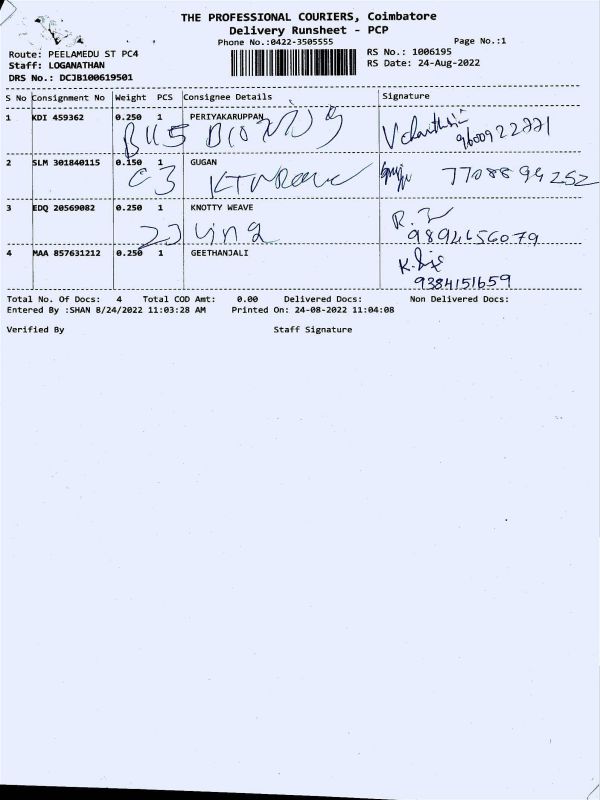 THE PROFESSIONAL COURIERS, Coimbatore
Delivery Runsheet - PCP
Phone No.:0422-3505555
Page No.:1
Route: PEELAMEDU ST PC4
Staff: LOGANATHAN
DRS No.: DCJB100619501
RS No.: 1006195
RS Date: 24-Aug-2022
S No Consignment No Weight PCS Consignee Details Signature
1 KDI 459362 0.250 1 PERIYAKARUPPAN
9600922771
2 SLM 301840115 0.150 1 GUGAN
C3 7708894252
3 EDQ 20569082 0.250 1 KNOTTY WEAVE
9894656079
4 MAA 857631212 0.250 1 GEETHANJALI
9384151659
Total No. Of Docs: 4 Total COD Amt: 0.00 Delivered Docs: Non Delivered Docs:
Entered By :SHAN 8/24/2022 11:03:28 AM Printed On: 24-08-2022 11:04:08
Verified By Staff Signature